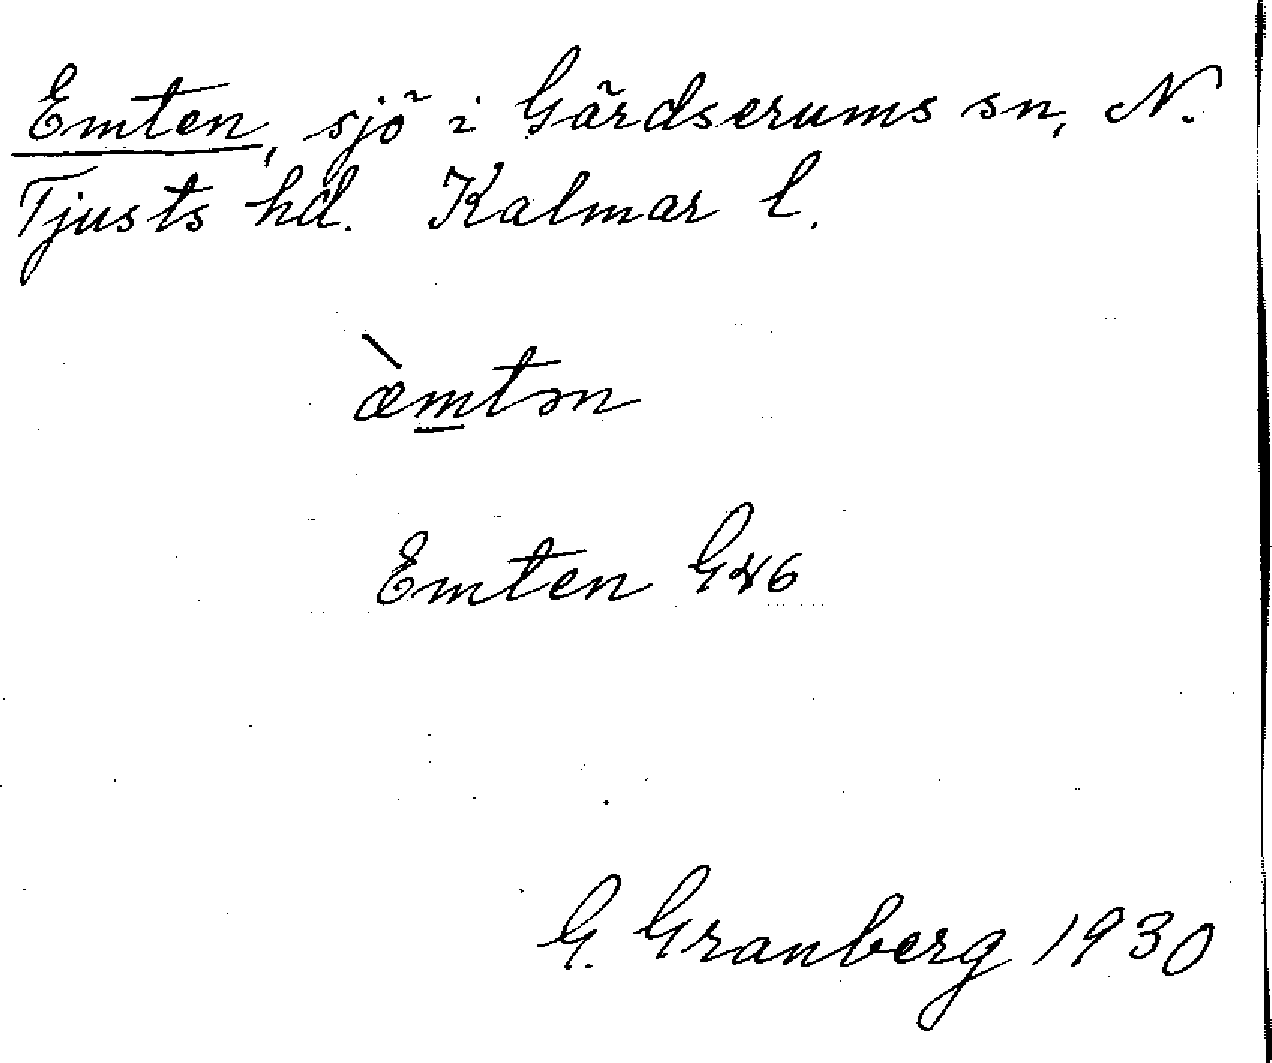 Emten, sjö i Gärdserums sn, N.
Tjusts hd. Kalmar l.
æ̀m̲tən
Emten
G. Granberg 1930